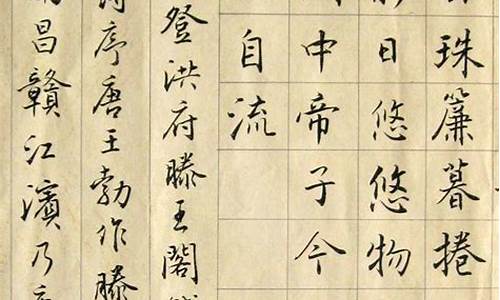 珠簾暮捲
日悠悠物
中帝子今
自流
登洪府滕王閣
序唐王勃作滕
昌贛江濱乃